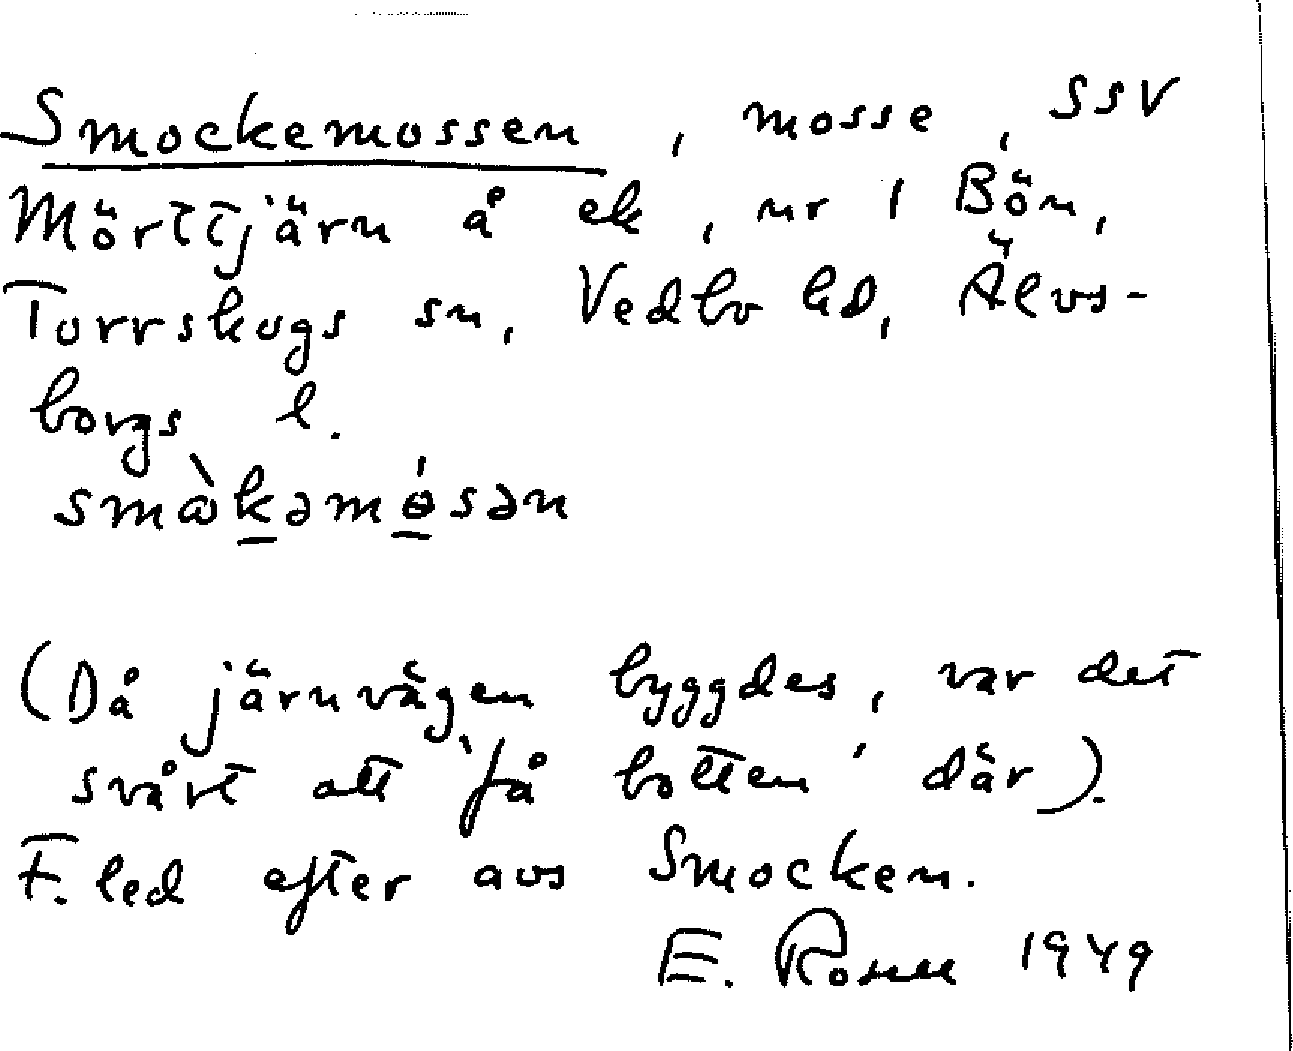 Smockemossen, mosse, SSV
Mörttjärn å ek, nr 1 Bön,
Torrskogs sn, Vedbo hd, Älvs-
borgs l.
smὼkəmɵ́sən
(Då järnvägen byggdes, var det
svårt att 'få botten' där).
F. led efter avs Smocken.
E. 1949